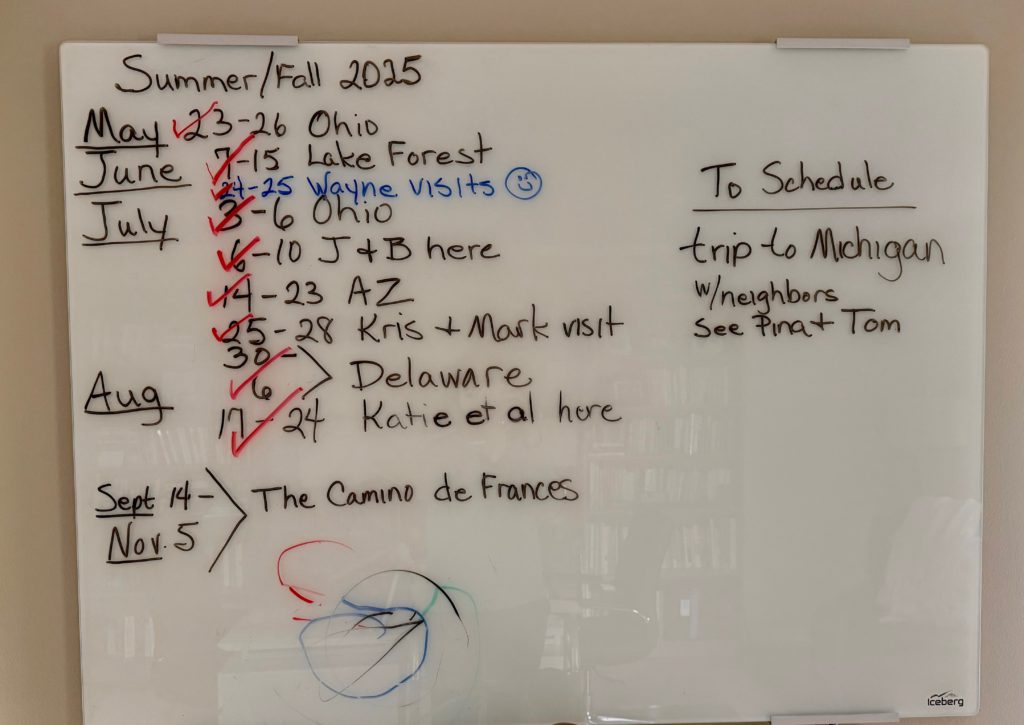 Summer/Fall 2025
May 23-26 Ohio
June 7-15 Lake Forest
24-25 Wayne visits
July 3-6 Ohio
6-10 J + B here
14-23 AZ
25-28 Kris + Mark visit
30-
Aug 6 Delaware
17-24 Katie et al here
Sept 14-
Nov. 5 The Camino de Frances
To Schedule
trip to Michigan
w/neighbors
See Pina + Tom
Iceberg